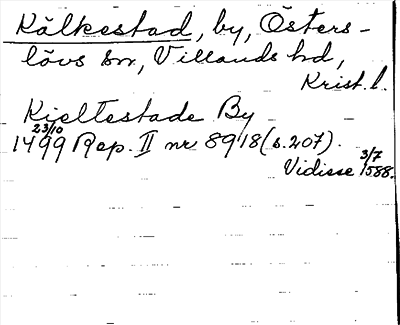 Kälkestad, by, Östers-
lövs sn, Villands hd,
Krist. l.
Kieltestade By
23/10
1499 Rep. II nr 8918 (s. 207).
Vidisse 3/7 1588.